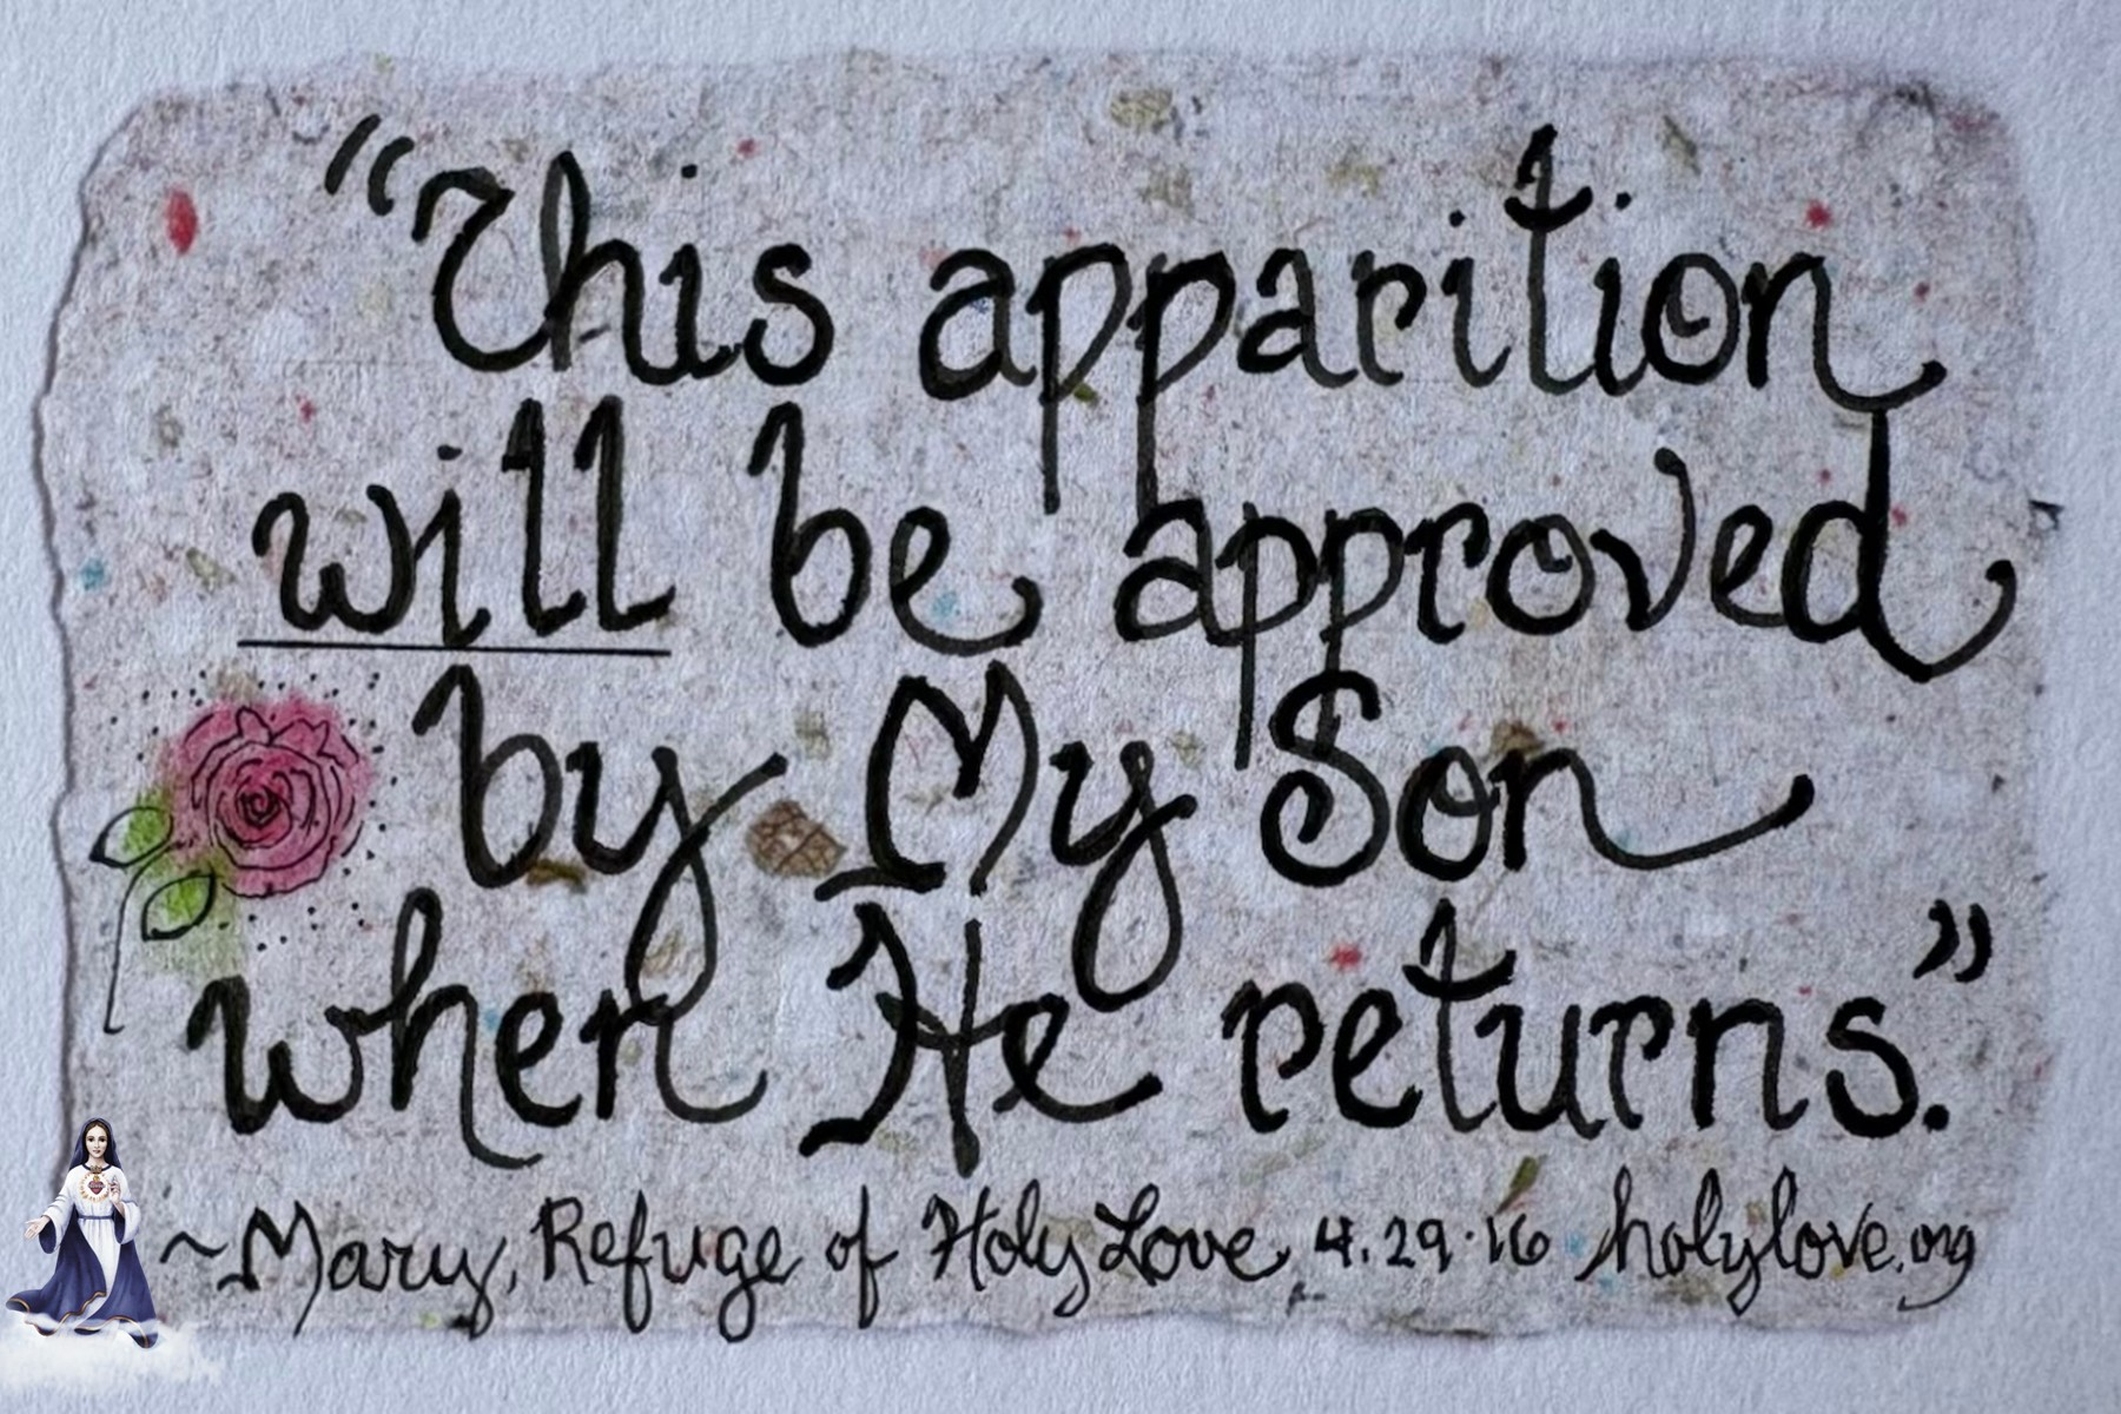 “This apparition
will be approved
by My Son
when He returns.”
~Mary, Refuge of Holy Love 4.29.16 holylove.org